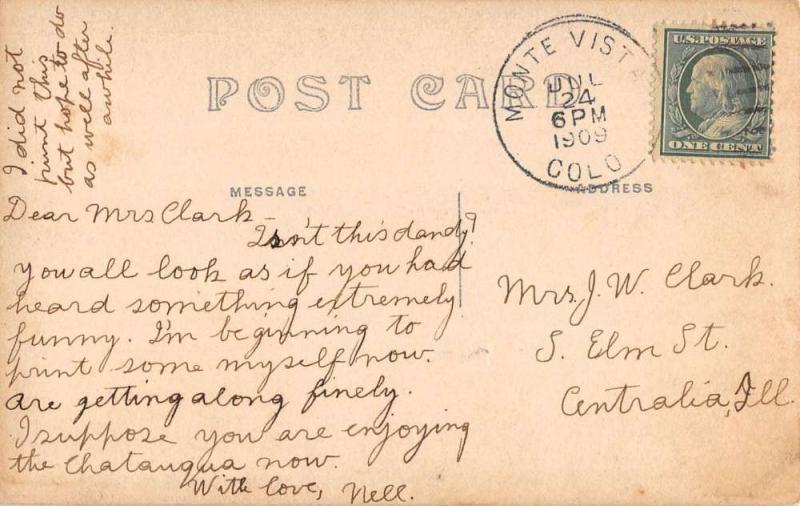 I did not
print this
but hope to do
as well after
awhile.
POST CARD
MONTE VISTA
JUL
24
6 PM
1909
COLO
U.S. POSTAGE
ONE CENT
MESSAGE
ADDRESS
Dear Mrs Clark -
Isn't this dandy?
You all look as if you had
heard something extremely
funny. I'm beginning to
print some myself now.
Are getting along finely.
I suppose you are enjoying
the Chatauqua now.
With love, Nell.
Mrs. J. W. Clark.
S. Elm St.
Centralia, Ill.